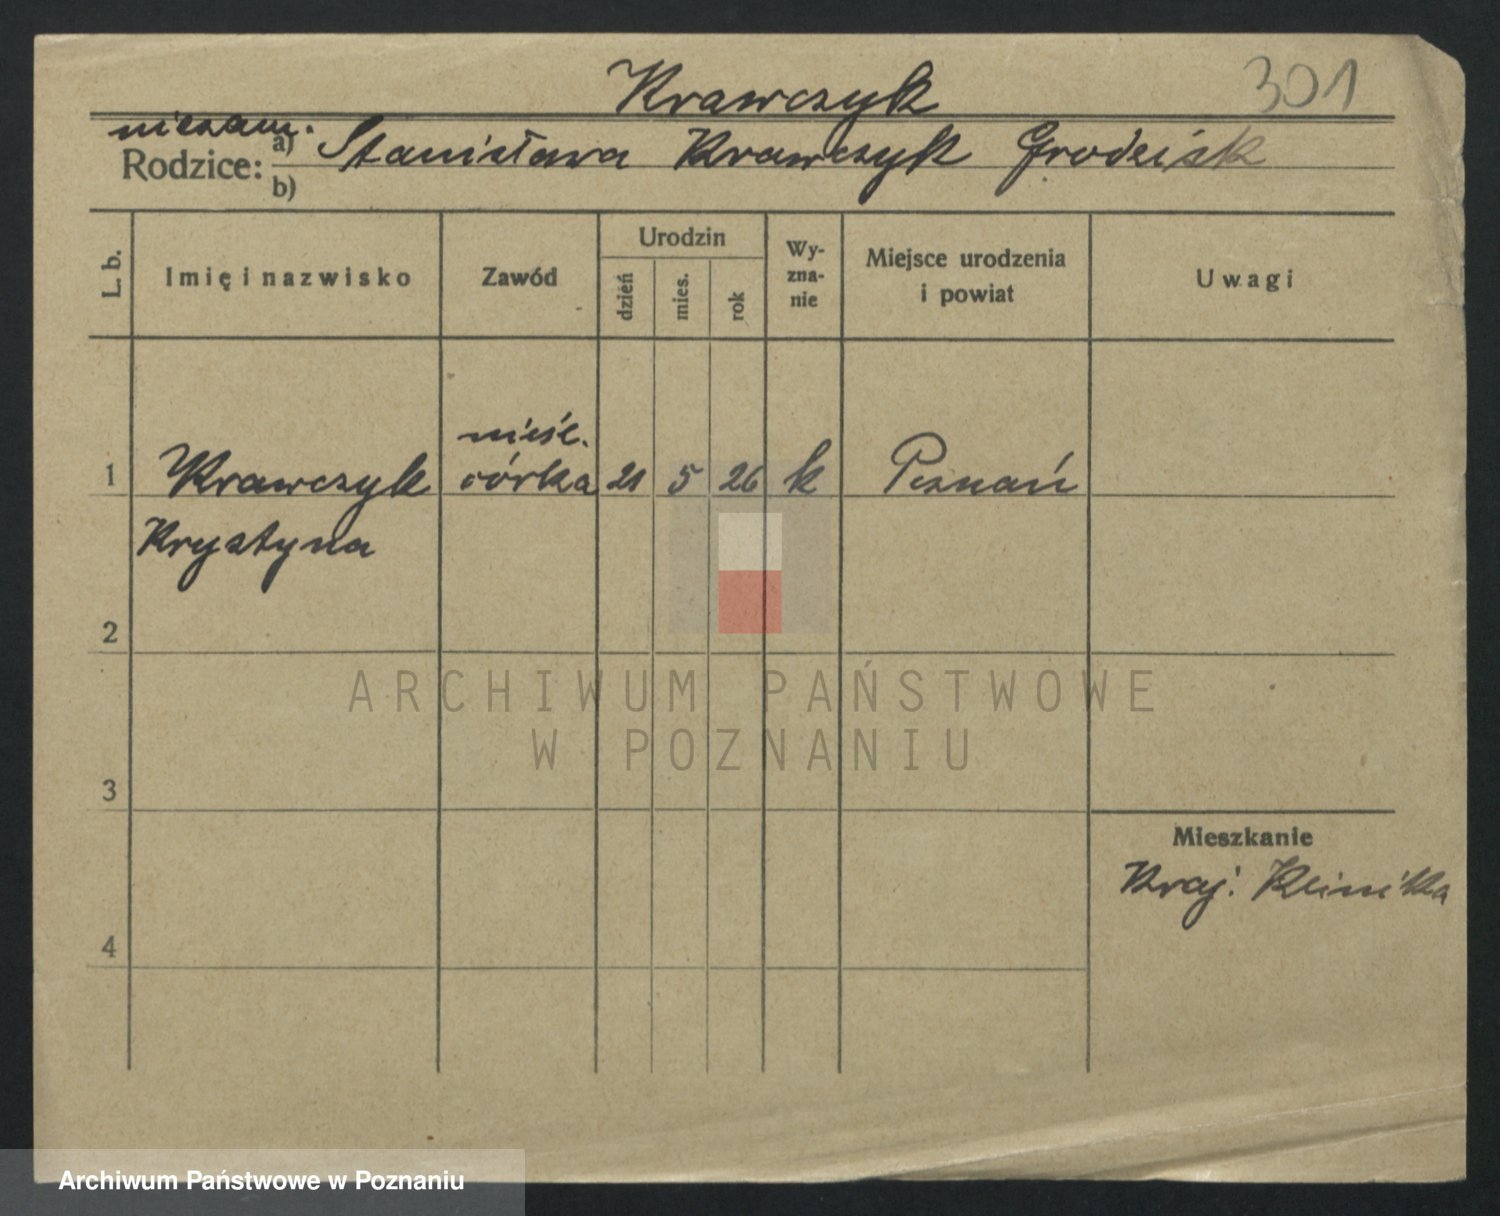 Krawczyk 301
niezam.
Rodzice: a) Stanisława Krawczyk Grodzisk
b)
L. b. Imię i nazwisko Zawód Urodzin dzień mies. rok Wy-zna-nie Miejsce urodzenia i powiat Uwagi
nieśl.
1 Krawczyk córka 21 5 26 k Poznań
Krystyna
2
ARCHIWUM PAŃSTWOWE
W POZNANIU
3
Mieszkanie
Kraj. Klinika
4
Archiwum Państwowe w Poznaniu